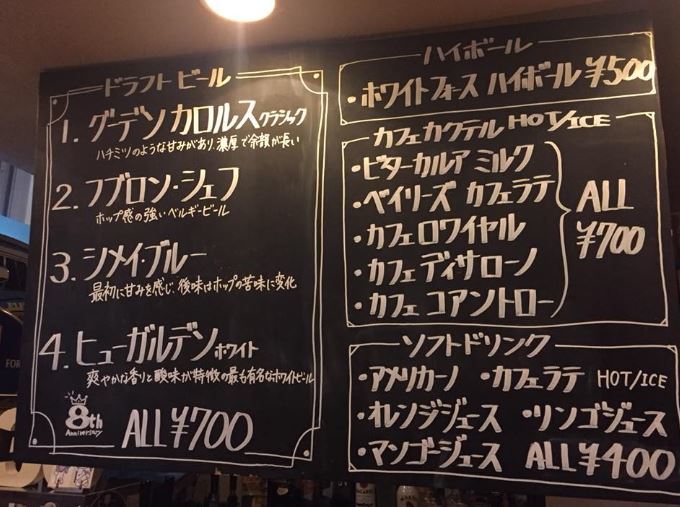 ドラフトビール
1. グーデン カロルス クラシック
ハチミツのような甘みがあり、濃厚で余韻が長い
2. フブロン・シェフ
ホップ感の強いベルギービール
3. シメイ・ブルー
最初に甘みを感じ、後味はホップの苦味に変化
4. ヒューガルデン ホワイト
爽やかな香りと酸味が特徴の最も有名なホワイトビール
8th
Anniversary
ALL ¥700
ハイボール
・ホワイトフォース ハイボール ¥500
カフェカクテル HOT/ICE
・ビターカルア ミルク
・ベイリーズ カフェラテ
・カフェ ロワイヤル
・カフェ ディサローノ
・カフェ コアントロー
ALL
¥700
ソフトドリンク
・アメリカーノ ・カフェラテ HOT/ICE
・オレンジジュース ・リンゴジュース
・マンゴージュース ALL ¥400
FOR